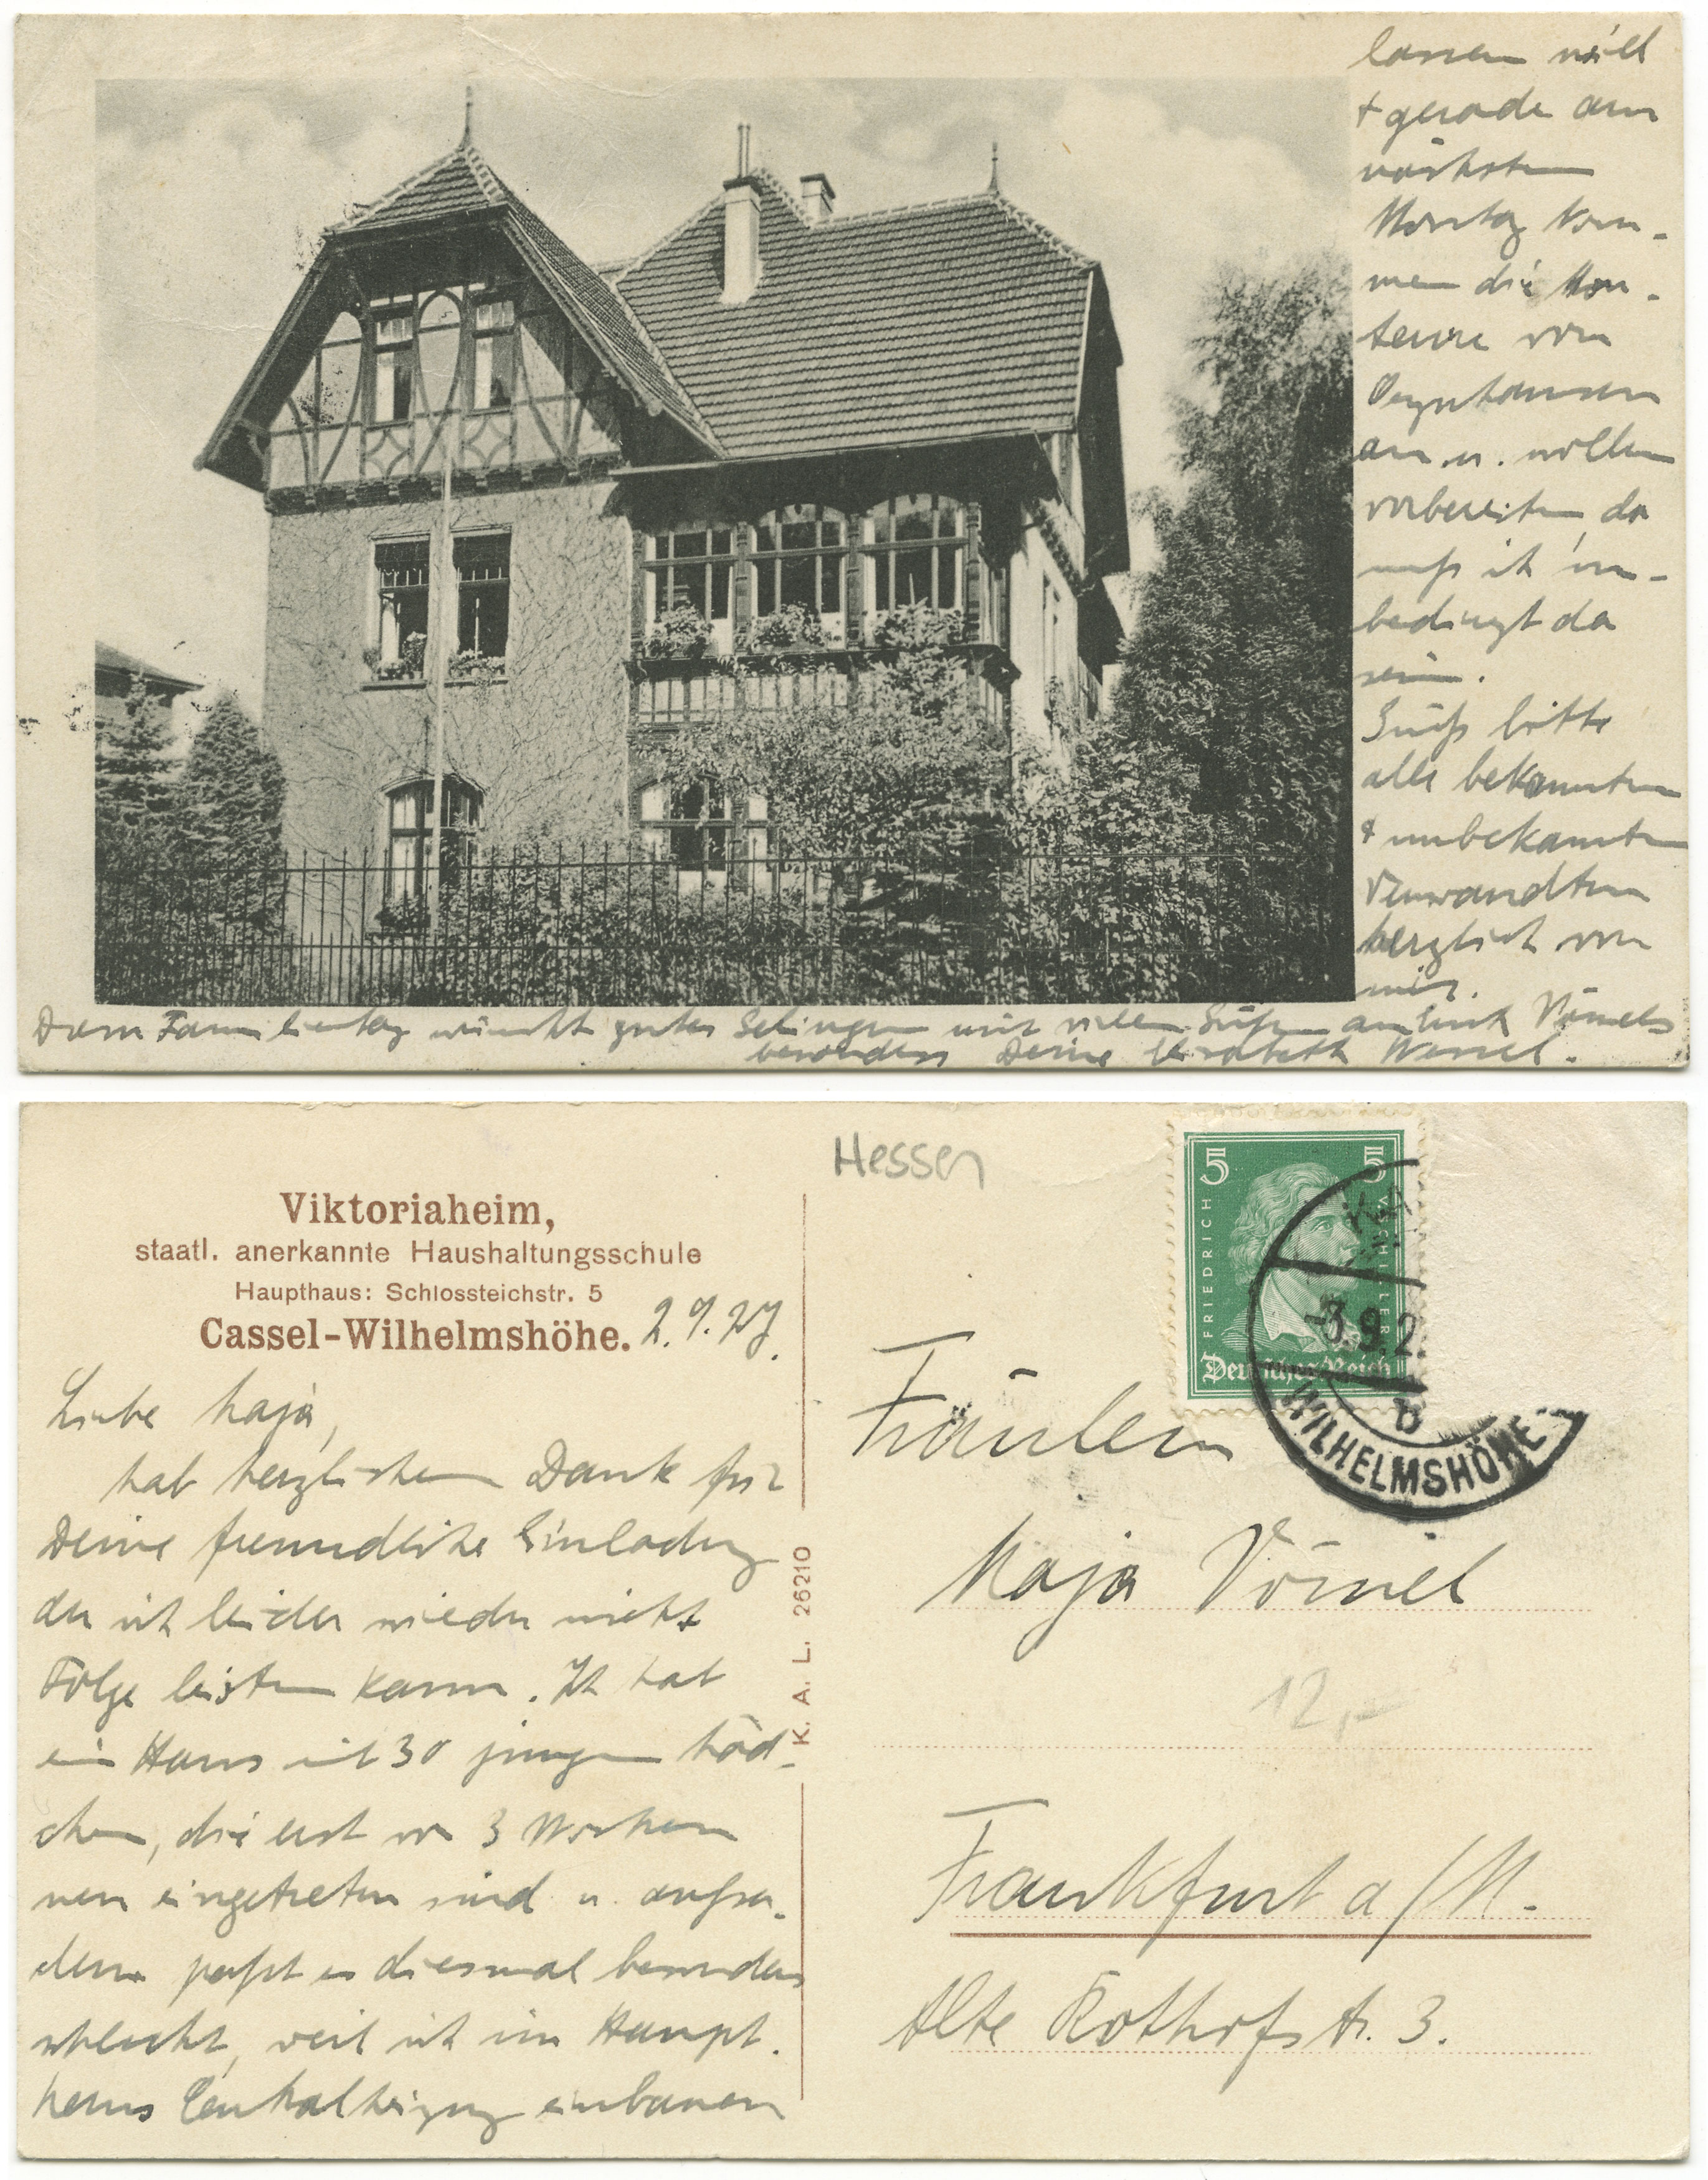 lassen will
+ gerade am
nächsten
Montag kom-
men die Mon-
teure von
Oeynhausen
an u. wollen
vorbereiten, da
muß ich un-
bedingt da
sein.
Grüß bitte
alle bekannten
+ unbekannten
Verwandten
herzlich von
mir.
Dem Familientag wünscht gutes Gelingen mit vielen Grüßen an Vömels
besonders Deine Elisabeth
Viktoriaheim,
staatl. anerkannte Haushaltungsschule
Haupthaus: Schlossteichstr. 5
Cassel-Wilhelmshöhe. 2.9.27.
Liebe Maja,
hab herzlichen Dank für
Deine freundliche Einladung
der ich leider wieder nicht
Folge leisten kann. Ich hab
ein Haus mit 30 jungen Mäd-
chen, die erst vor 3 Wochen
neu eingetreten sind u. außer-
dem paßt es diesmal besonders
schlecht, weil ich im Haupt-
haus Centralheizung einbauen
K. A. L. 26210
Hessen
5 5
FRIEDRICH VSCHILLER
Deutsches Reich
-3.9.2
b
WILHELMSHÖHE
Fräulein
Maja Vömel
12,-
Frankfurt a/M.
Alte Rothofstr. 3.